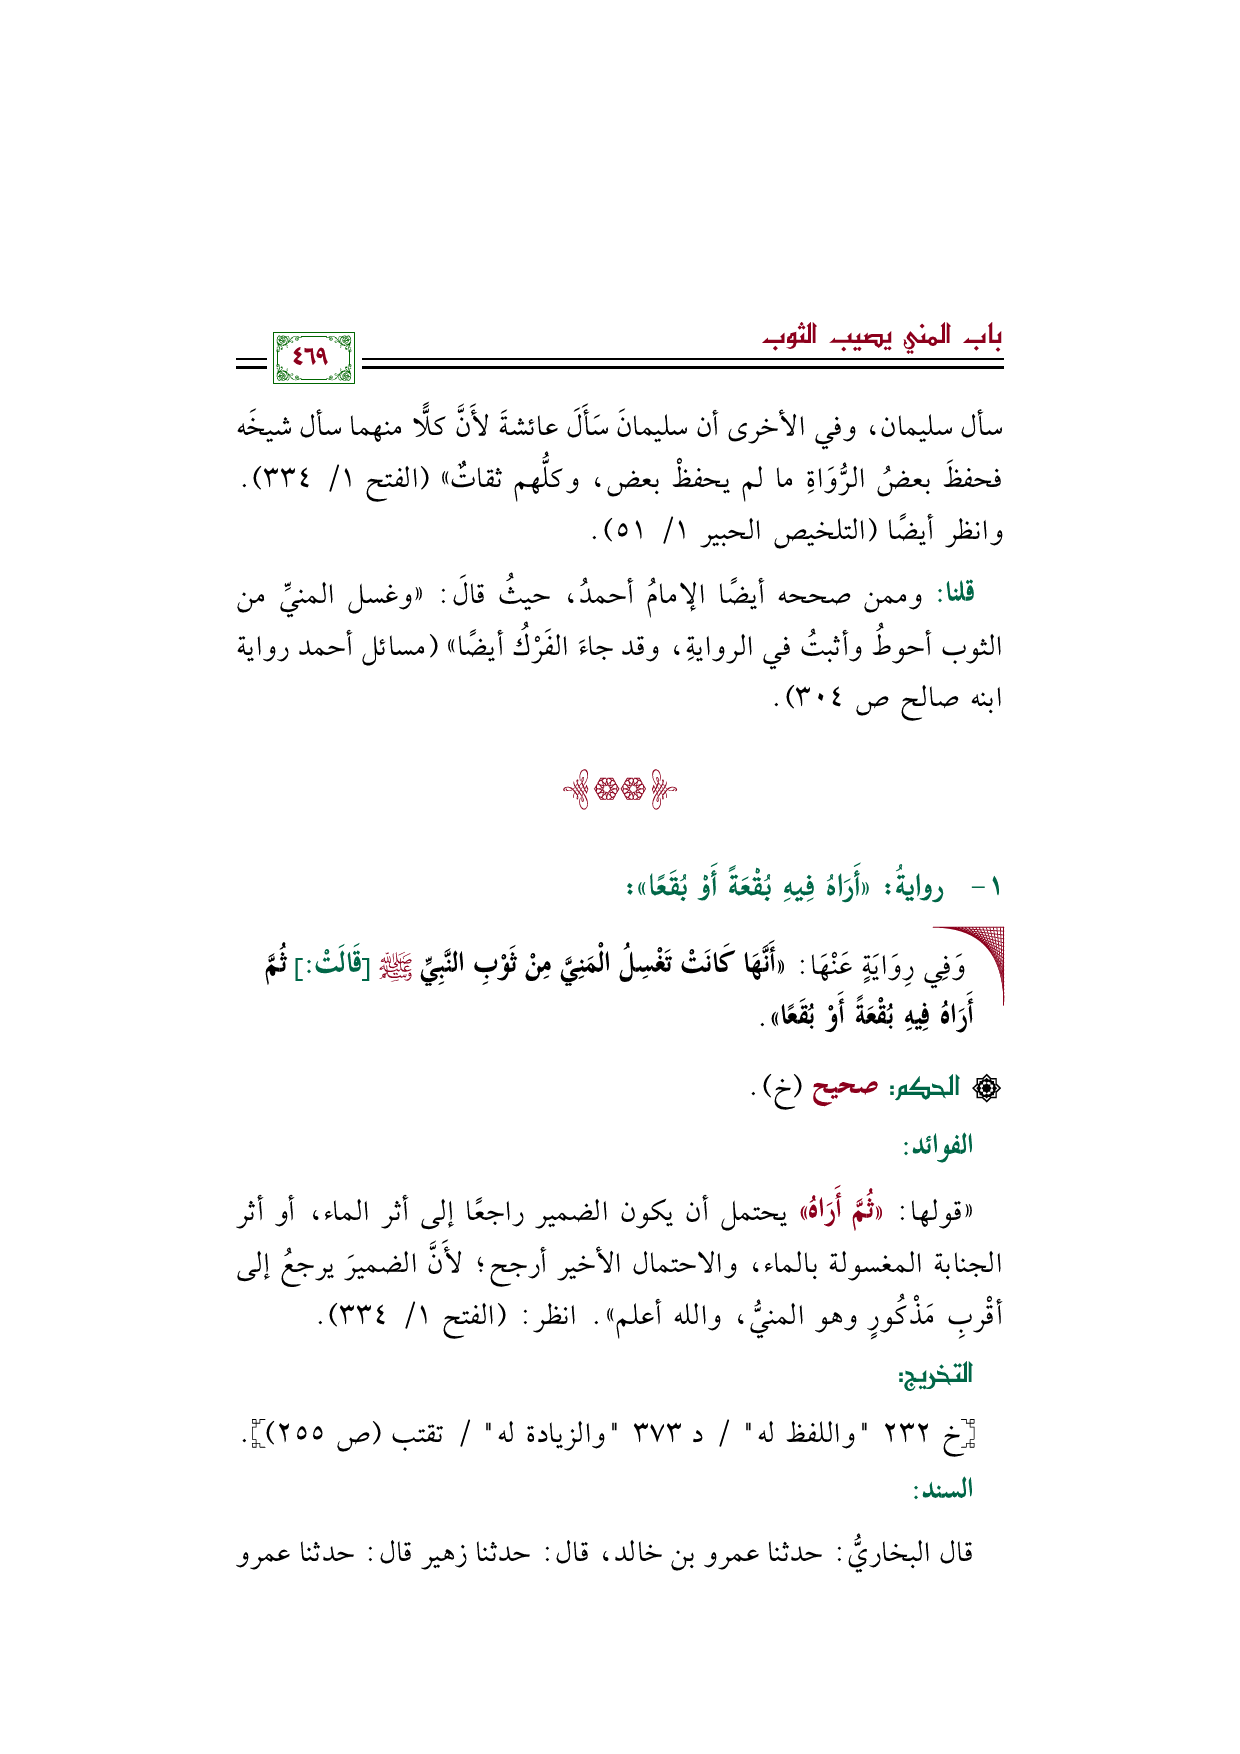 باب المني يصيب الثوب
٤٦٩
سأل سليمان، وفي الأخرى أن سليمانَ سَأَلَ عائشةَ لأَنَّ كلًّا منهما سأل شيخَه
فحفظَ بعضُ الرُّوَاةِ ما لم يحفظْ بعض، وكلُّهم ثقاتٌ» (الفتح ١/ ٣٣٤).
وانظر أيضًا (التلخيص الحبير ١/ ٥١).
قلنا: وممن صححه أيضًا الإمامُ أحمدُ، حيثُ قالَ: «وغسل المنيِّ من
الثوب أحوطُ وأثبتُ في الروايةِ، وقد جاءَ الفَرْكُ أيضًا» (مسائل أحمد رواية
ابنه صالح ص ٣٠٤).
١- روايةُ: «أَرَاهُ فِيهِ بُقْعَةً أَوْ بُقَعًا»:
وَفِي رِوَايَةٍ عَنْهَا: «أَنَّهَا كَانَتْ تَغْسِلُ الْمَنِيَّ مِنْ ثَوْبِ النَّبِيِّ ﷺ [قَالَتْ:] ثُمَّ
أَرَاهُ فِيهِ بُقْعَةً أَوْ بُقَعًا».
الحكم: صحيح (خ).
الفوائد:
«قولها: «ثُمَّ أَرَاهُ» يحتمل أن يكون الضمير راجعًا إلى أثر الماء، أو أثر
الجنابة المغسولة بالماء، والاحتمال الأخير أرجح؛ لأَنَّ الضميرَ يرجعُ إلى
أقْربِ مَذْكُورٍ وهو المنيُّ، والله أعلم». انظر: (الفتح ١/ ٣٣٤).
التخريج:
[خ ٢٣٢ "واللفظ له" / د ٣٧٣ "والزيادة له" / تقتب (ص ٢٥٥)].
السند:
قال البخاريُّ: حدثنا عمرو بن خالد، قال: حدثنا زهير قال: حدثنا عمرو